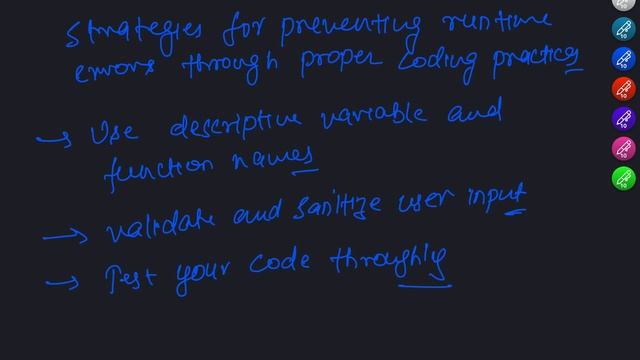 Strategies for preventing runtime
errors through proper coding practices
→ Use descriptive variable and
function names
→ Validate and sanitize user input
→ Test your code throughly
10
10
10
10
10
10